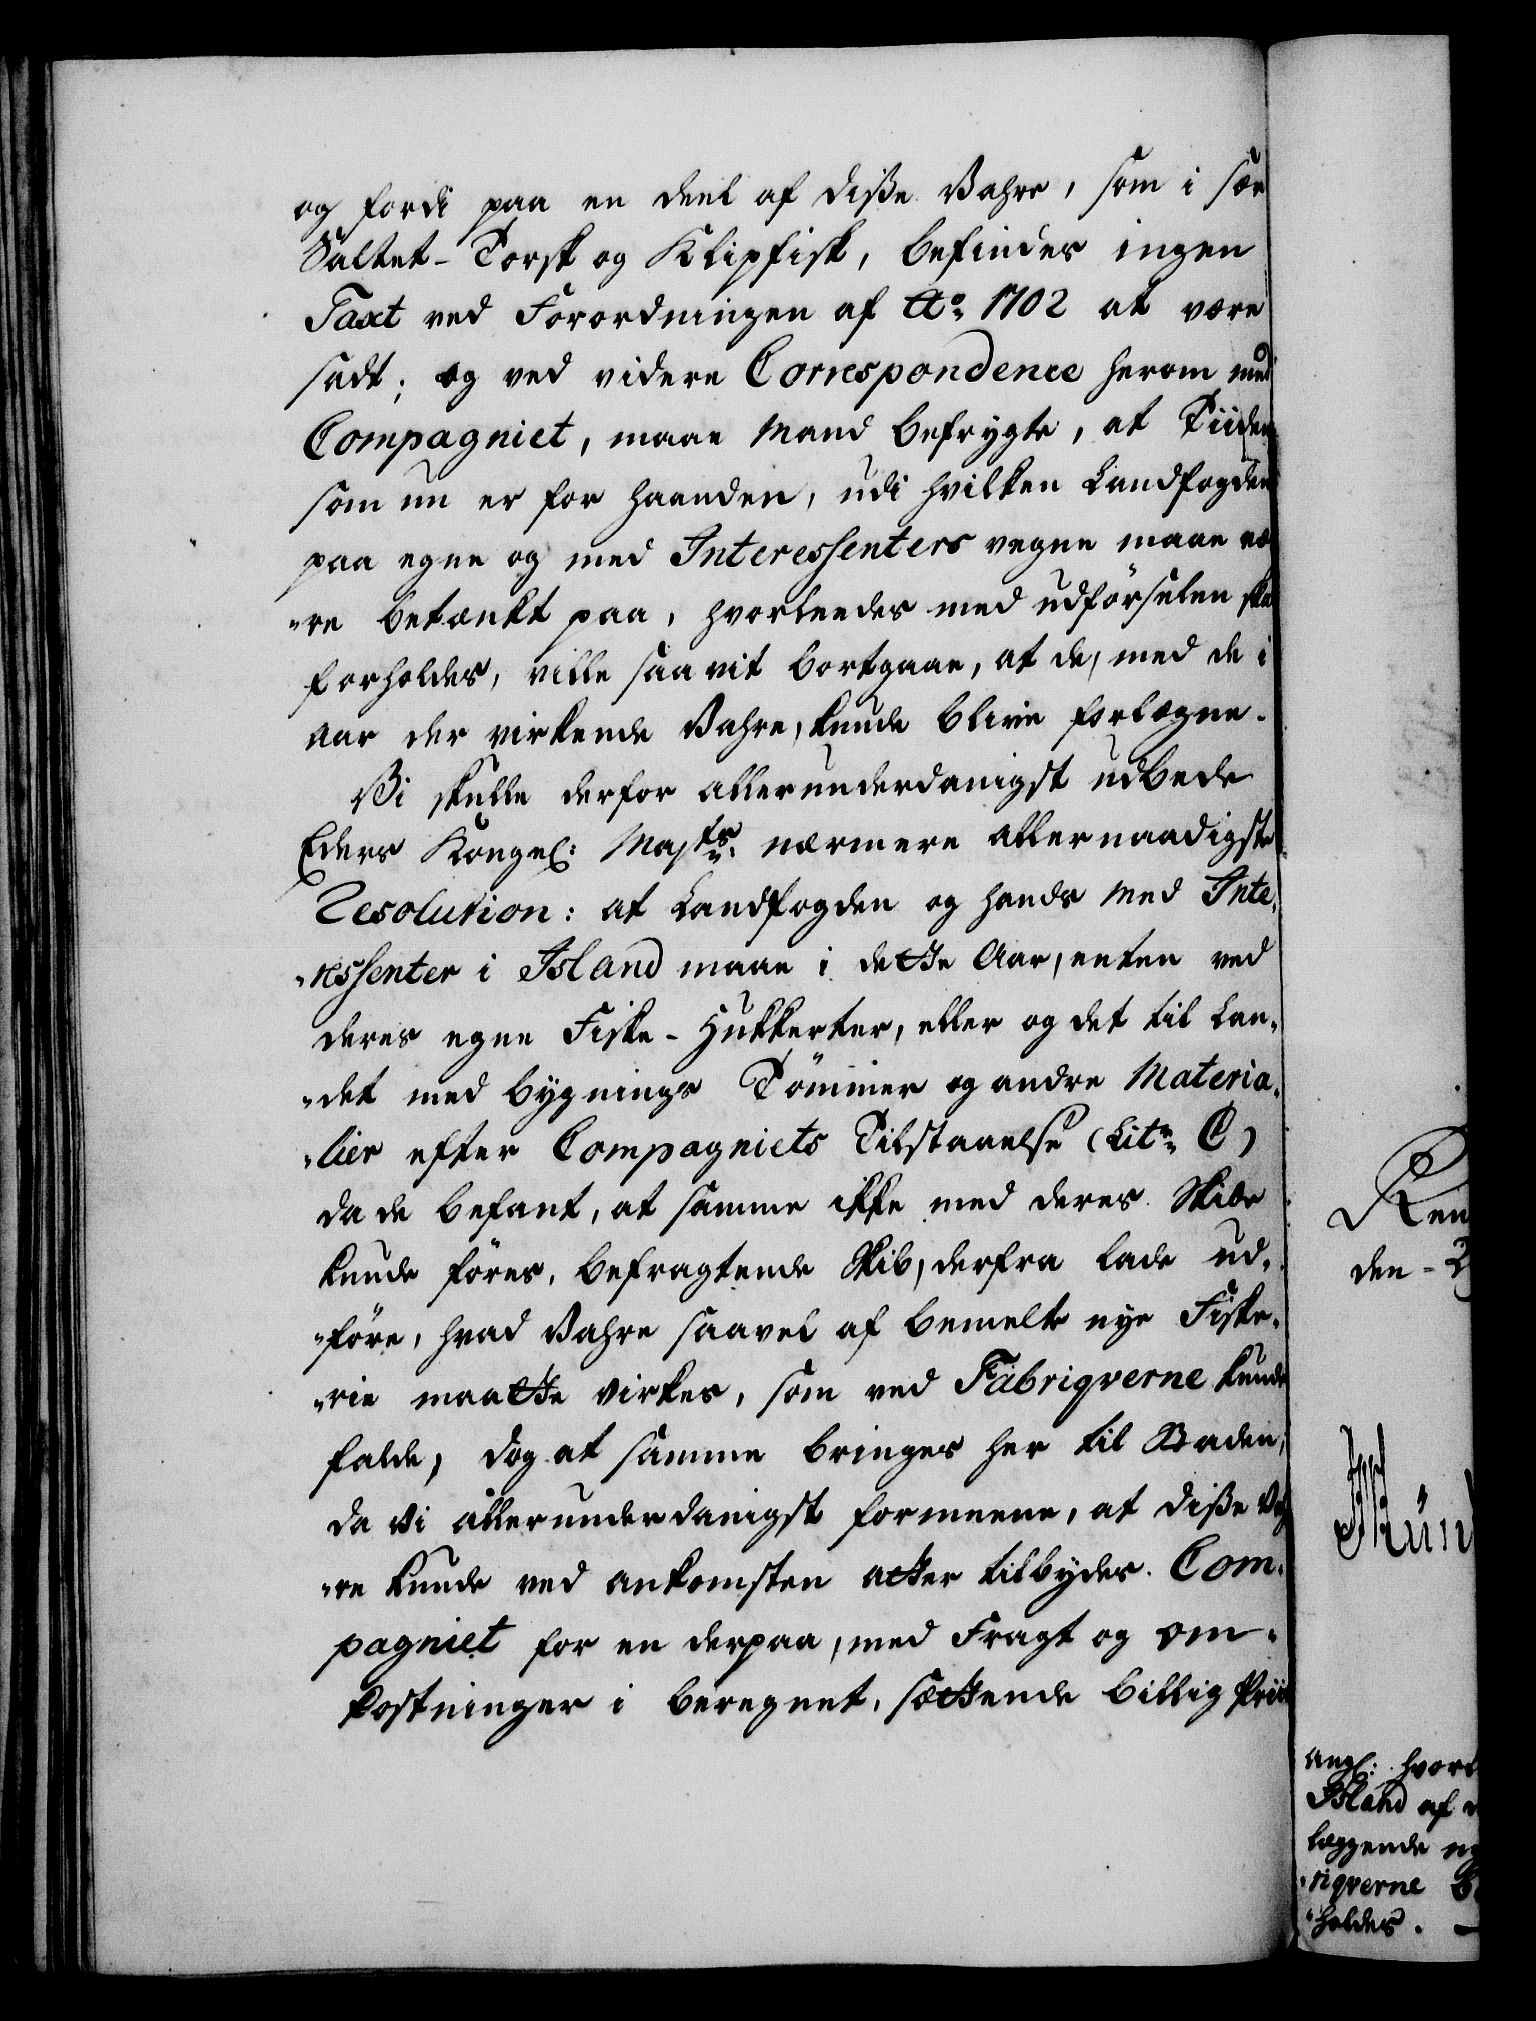 og fordi paa en deel af diße Vahre, som i sær
Saltet-Torsk og Klipfisk, befindes ingen
Taxt ved Forordningen af Ao 1702 at være
sadt; og ved videre Correspondence herom med
Compagniet, maae Mand befrygte, at Tiiden
som nu er for haanden, udi hvilken Landfogden
paa egne og med Interessenters vegne maae væ
"re betænkt paa, hvorleedes med udførselen skal
forholdes, ville saa vit bortgaae, at de, med de i
aar der virkende Vahre, kunde blive forlægne.
Vi skulle derfor allerunderdanigst udbede
Eders Kongel: Majts: nærmere allernaadigste
Resolution: at Landfogden og hands Med Inte,
"ressenter i Island maae i dette Aar, enten ved
deres egne Fiske-Hukkerter, eller og det til Lan,
"det med bygnings Tømmer og andre Materia,
"lier efter Compagniets Tilstaaelse (Litr: C)
da de befant, at samme ikke med deres Skibe
kunde føres, befragtende Skib, derfra lade ud,
"føre, hvad Vahre saavel af bemelte nye Fiske,
"rie maatte virkes, som ved Fabriqverne kunde
falde, dog at samme bringes her til Staden,
da vi allerunderdanigst formeene, at diße Vah
"re kunde ved ankomsten atter tilbydes Com,
pagniet for en derpaa, med Fragt og om,
kostninger i beregnet, sættende billig Priis
den
Island af
læggende
"riqverne
"holdes. —